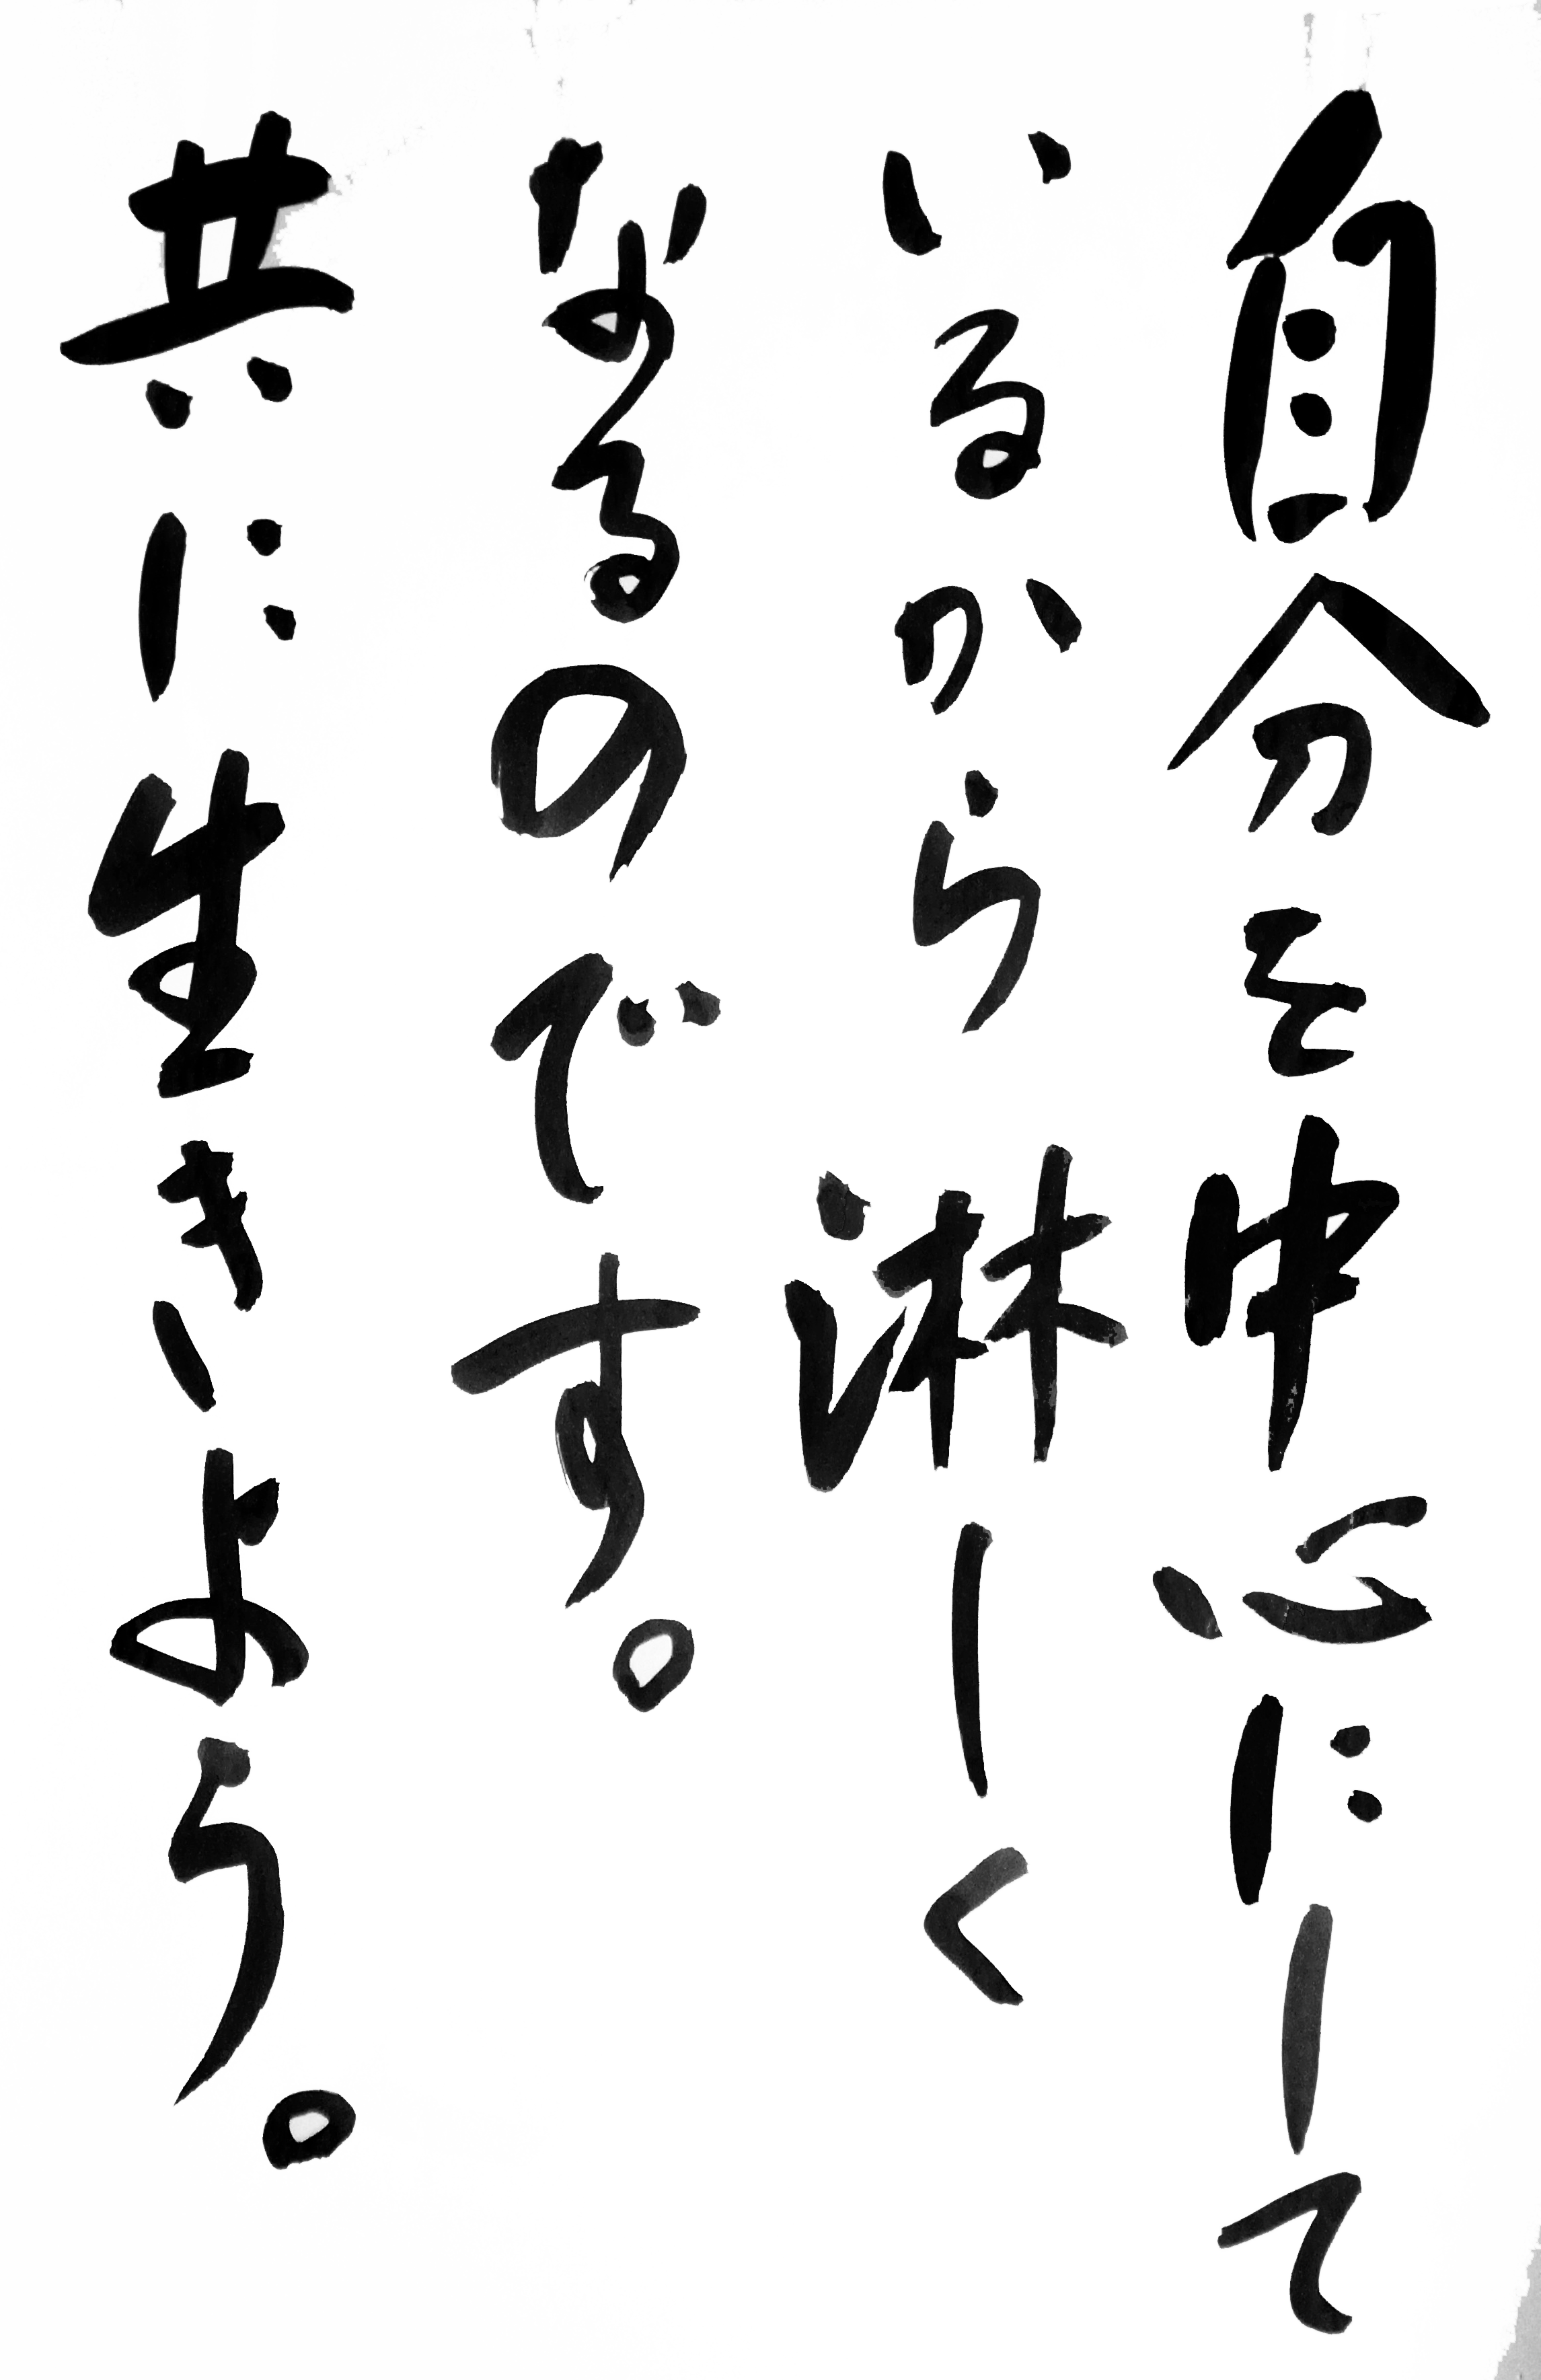 自分を中心にして
いるから淋しく
なるのです。
共に生きいよう。